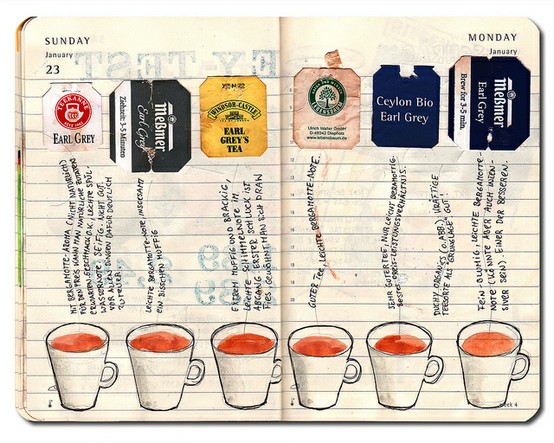 SUNDAY
January
23
MONDAY
January
TEEKANNE
EARL GREY
Meßmer
Earl Grey
Ziehzeit: 3-5 Minuten
WINDSOR-CASTLE
EARL
GREY'S
TEA
LEBENSBAUM
Ulrich Walter GmbH
D-49343 Diepholz
www.lebensbaum.de
Ceylon Bio
Earl Grey
Meßmer
Earl Grey
Brew for 3-5 min.
MIT BERGAMOTTE-AROMA (NICHT NATÜRLICH)
FÜR DEN PREIS KANN MAN NATÜRLICHE
ERWARTEN. GESCHMACK O.K., LEICHTE SPÜL-
WASSERNOTE, SEIFIG. NICHT GUT.
VOR ALLEN DINGEN DAFÜR DEUTLICH
ZU TEUER.
LEICHTE BERGAMOTTE-NOTE, INSGESAMT
EIN BISSCHEN MUFFIG
ETWAS MUFFIG UND BRACKIG,
LEICHTE SCHIMMELNOTE IM
ABGANG. ERSTER SCHLUCK IST
FIES, GEWÖHNT MAN SICH DRAN
GUTER TEE, LEICHTE BERGAMOTTE-NOTE.
SEHR GUTER TEE, NUR LEICHT BERGAMOTTIG.
BESTES PREIS-LEISTUNGSVERHÄLTNIS.
KRÄFTIGE
TEESORTE ALS GRUNDLAGE GUT!
FEIN-BLUMIG, LEICHTE BERGAMOTTE-
NOTE (KÖNNTE ABER AUCH INTEN-
SIVER SEIN). EINER DER BESSEREN.
Week 4